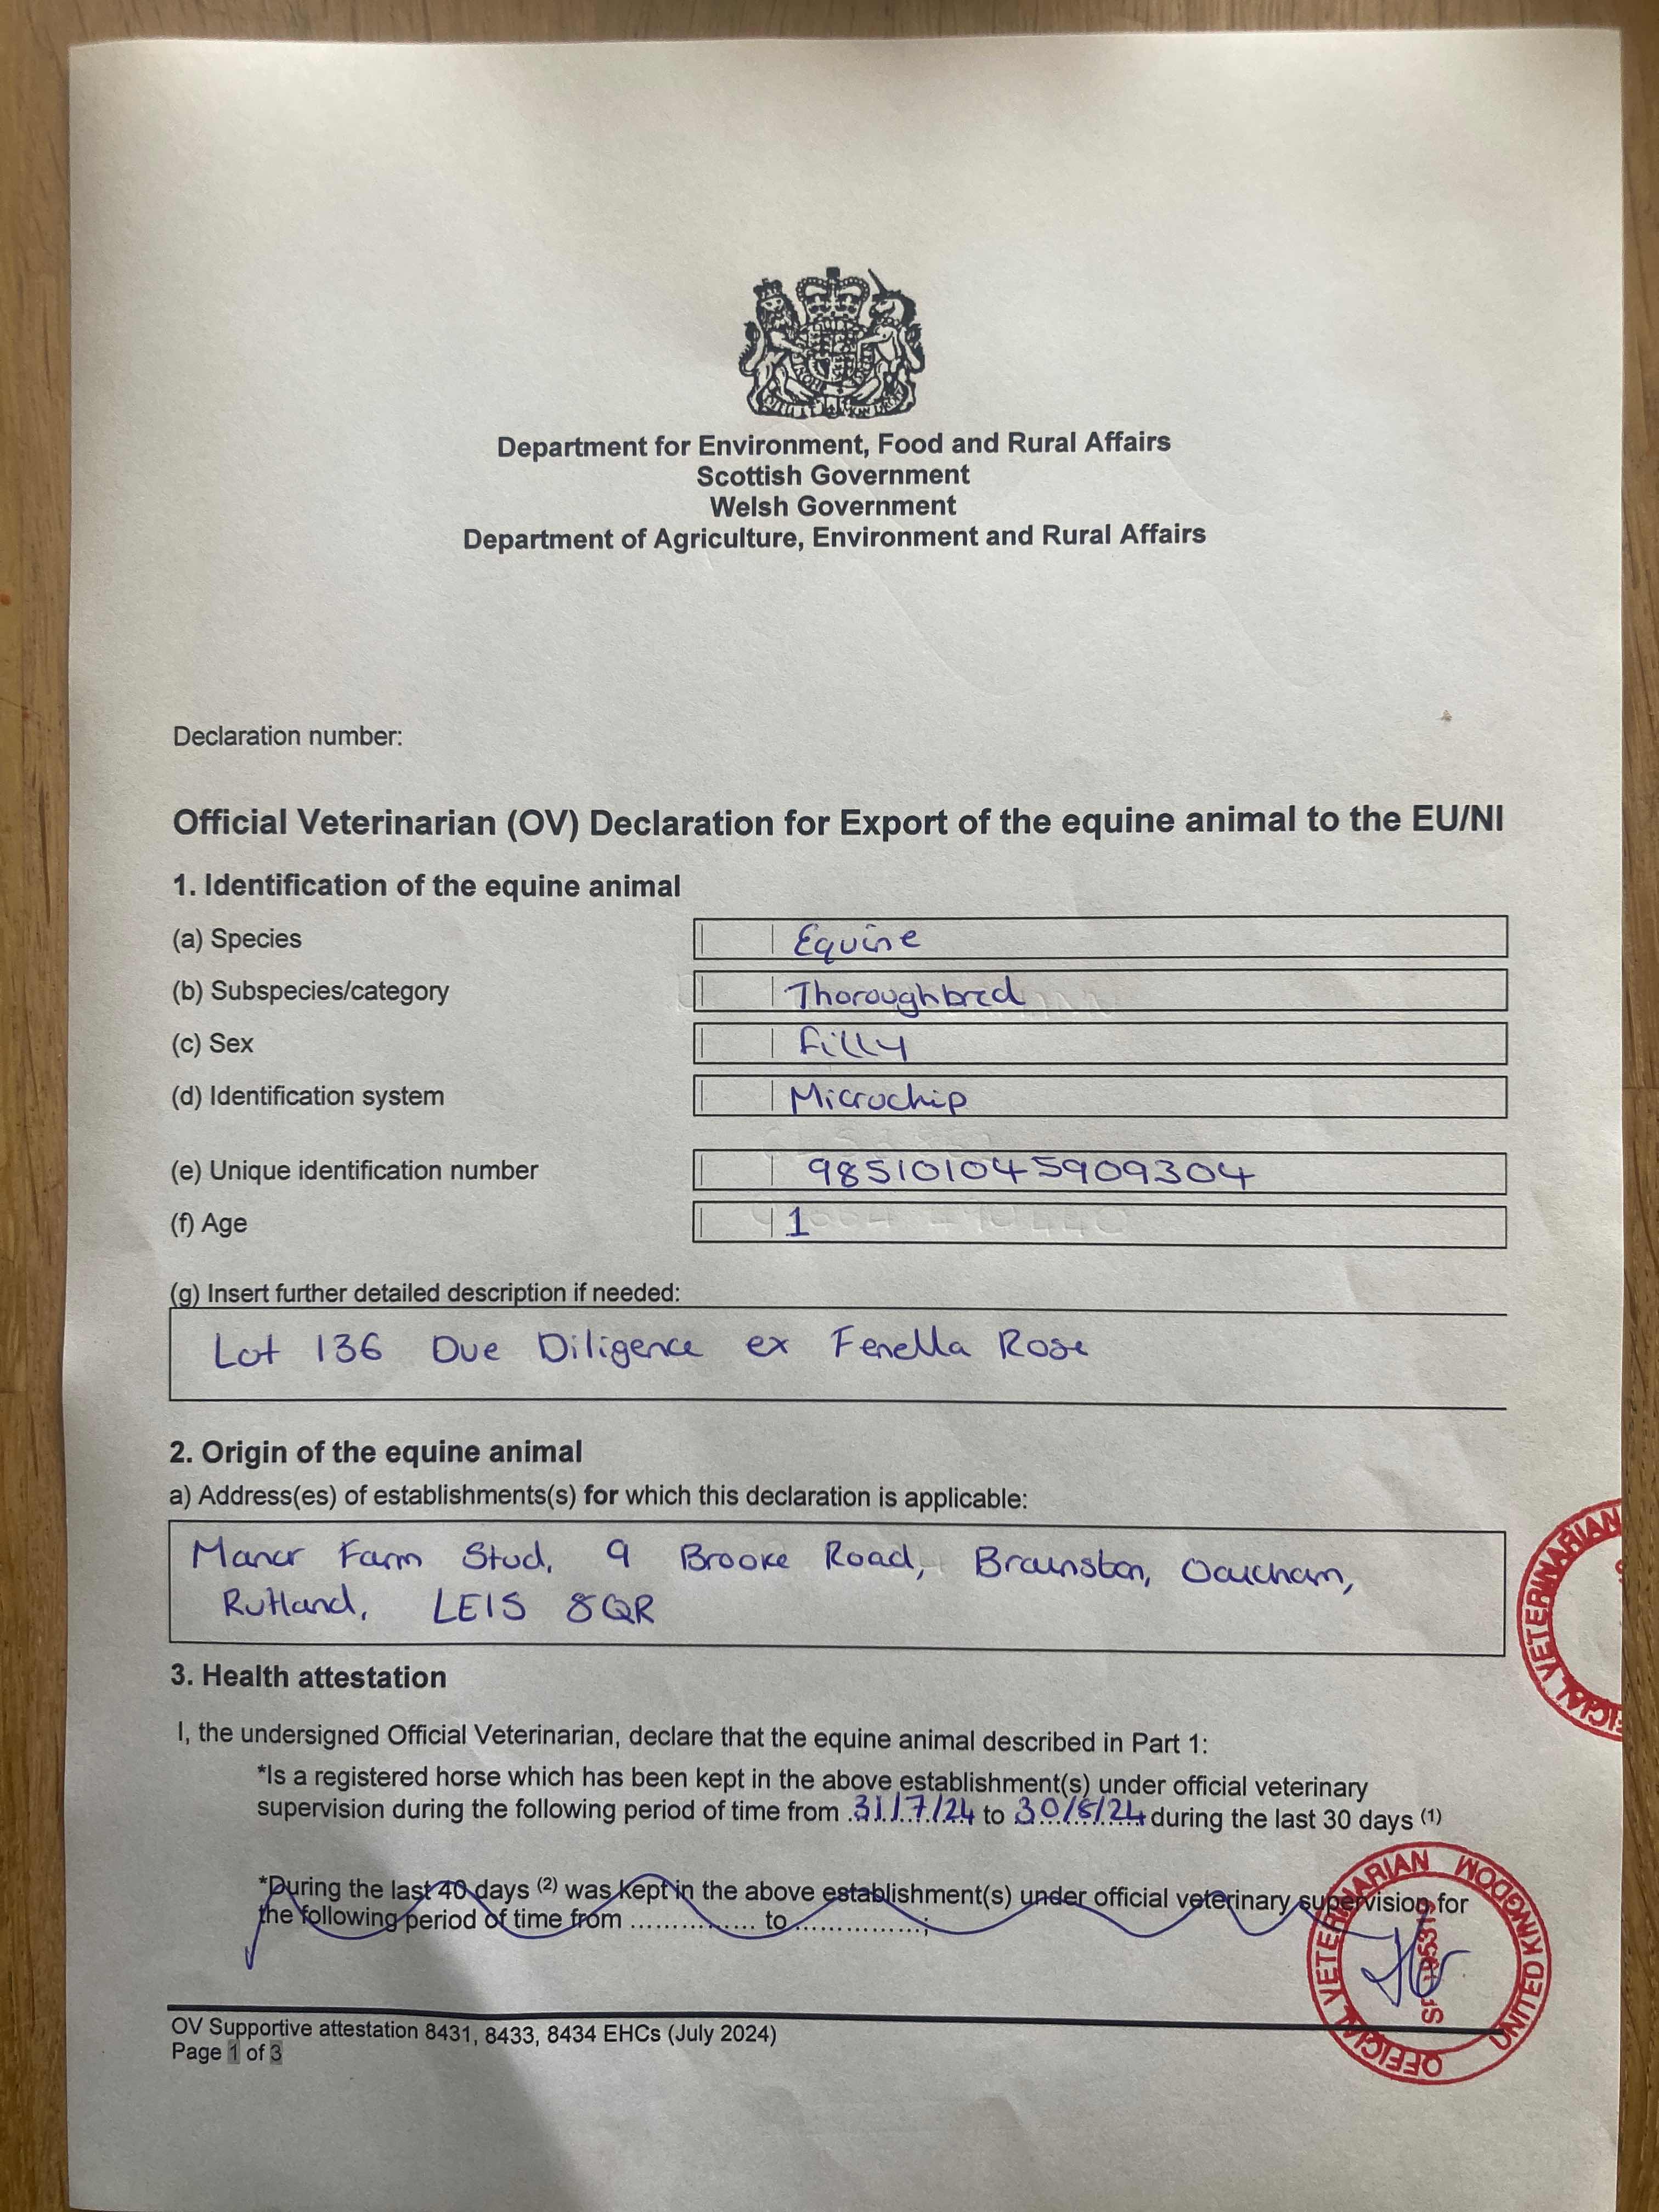 Department for Environment, Food and Rural Affairs
Scottish Government
Welsh Government
Department of Agriculture, Environment and Rural Affairs
Declaration number:
Official Veterinarian (OV) Declaration for Export of the equine animal to the EU/NI
1. Identification of the equine animal
(a) Species Equine
(b) Subspecies/category Thoroughbred
(c) Sex Filly
(d) Identification system Microchip
(e) Unique identification number 985101045909304
(f) Age 1
(g) Insert further detailed description if needed:
Lot 136 Due Diligence ex Fenella Rose
2. Origin of the equine animal
a) Address(es) of establishments(s) for which this declaration is applicable:
Manor Farm Stud, 9 Brooke Road, Braunston, Oakham,
Rutland, LE15 8QR
3. Health attestation
I, the undersigned Official Veterinarian, declare that the equine animal described in Part 1:
*Is a registered horse which has been kept in the above establishment(s) under official veterinary
supervision during the following period of time from 31/7/24 to 30/8/24 during the last 30 days (1)
*During the last 40 days (2) was kept in the above establishment(s) under official veterinary supervision for
the following period of time from ................ to ................;
OFFICIAL VETERINARIAN UNITED KINGDOM
OV Supportive attestation 8431, 8433, 8434 EHCs (July 2024)
Page 1 of 3
VETERINARIAN